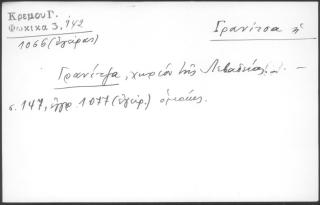 Κρεμου Γ.
Φωκικα 3, 142
1066 (ἐγείρας)
Γρανίτσα ἡ
Γρανίτσα, χωρίον τῆς Λεβαδείας. —
σ. 147, ἐγγρ. 1077 (ἐγείρ.) ὁμοίως.